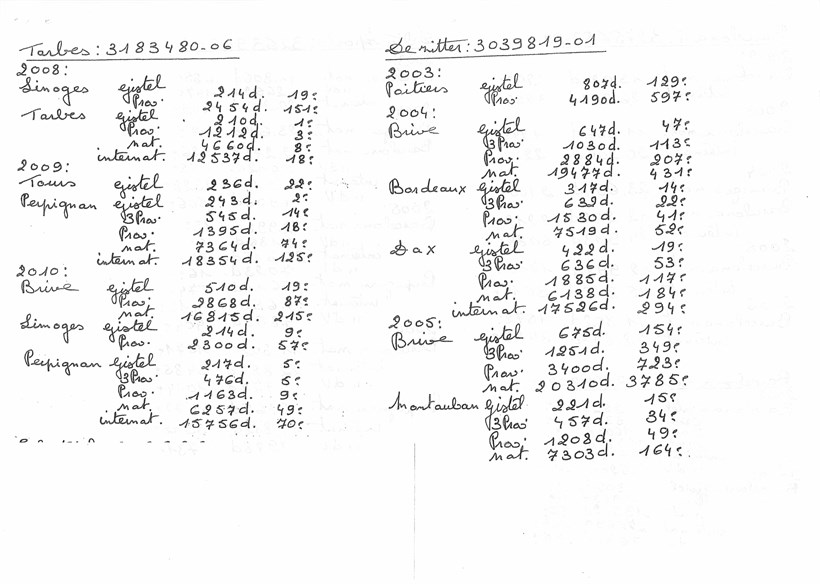 Tarbes: 3183480-06
2008:
Limoges gistel 214d. 19e
Prov. 2454d. 151e
Tarbes gistel 210d. 1e
Prov. 1212d. 3e
nat. 4660d. 8e
internat. 12537d. 18e
2009:
Tours gistel 236d. 22e
Perpignan gistel 243d. 2e
3Prov. 545d. 14e
Prov. 1395d. 18e
nat. 7364d. 74e
internat. 18354d. 125e
2010:
Brive gistel 510d. 19e
Prov. 2868d. 87e
nat. 16815d. 215e
Limoges gistel 214d. 9e
Prov. 2300d. 57e
Perpignan Gistel 217d. 5e
3Prov. 476d. 5e
Prov. 1163d. 9e
nat. 6257d. 49e
internat. 15756d. 70e
De nitter: 3039819-01
2003:
Poitiers gistel 807d. 129e
Prov. 4190d. 597e
2004:
Brive gistel 647d. 47e
3Prov. 1030d. 113e
Prov. 2884d. 207e
nat. 19477d. 431e
Bordeaux gistel 317d. 14e
3Prov. 632d. 22e
Prov. 1530d. 41e
nat. 7519d. 52e
Dax gistel 422d. 19e
3Prov. 636d. 53e
Prov. 1885d. 117e
nat. 6138d. 184e
internat. 17526d. 294e
2005:
Brive gistel 675d. 154e
3Prov. 1251d. 349e
Prov. 3400d. 723e
nat. 20310d. 3785e
Montauban Gistel 221d. 15e
3Prov. 457d. 34e
Prov. 1208d. 49e
nat. 7303d. 164e.